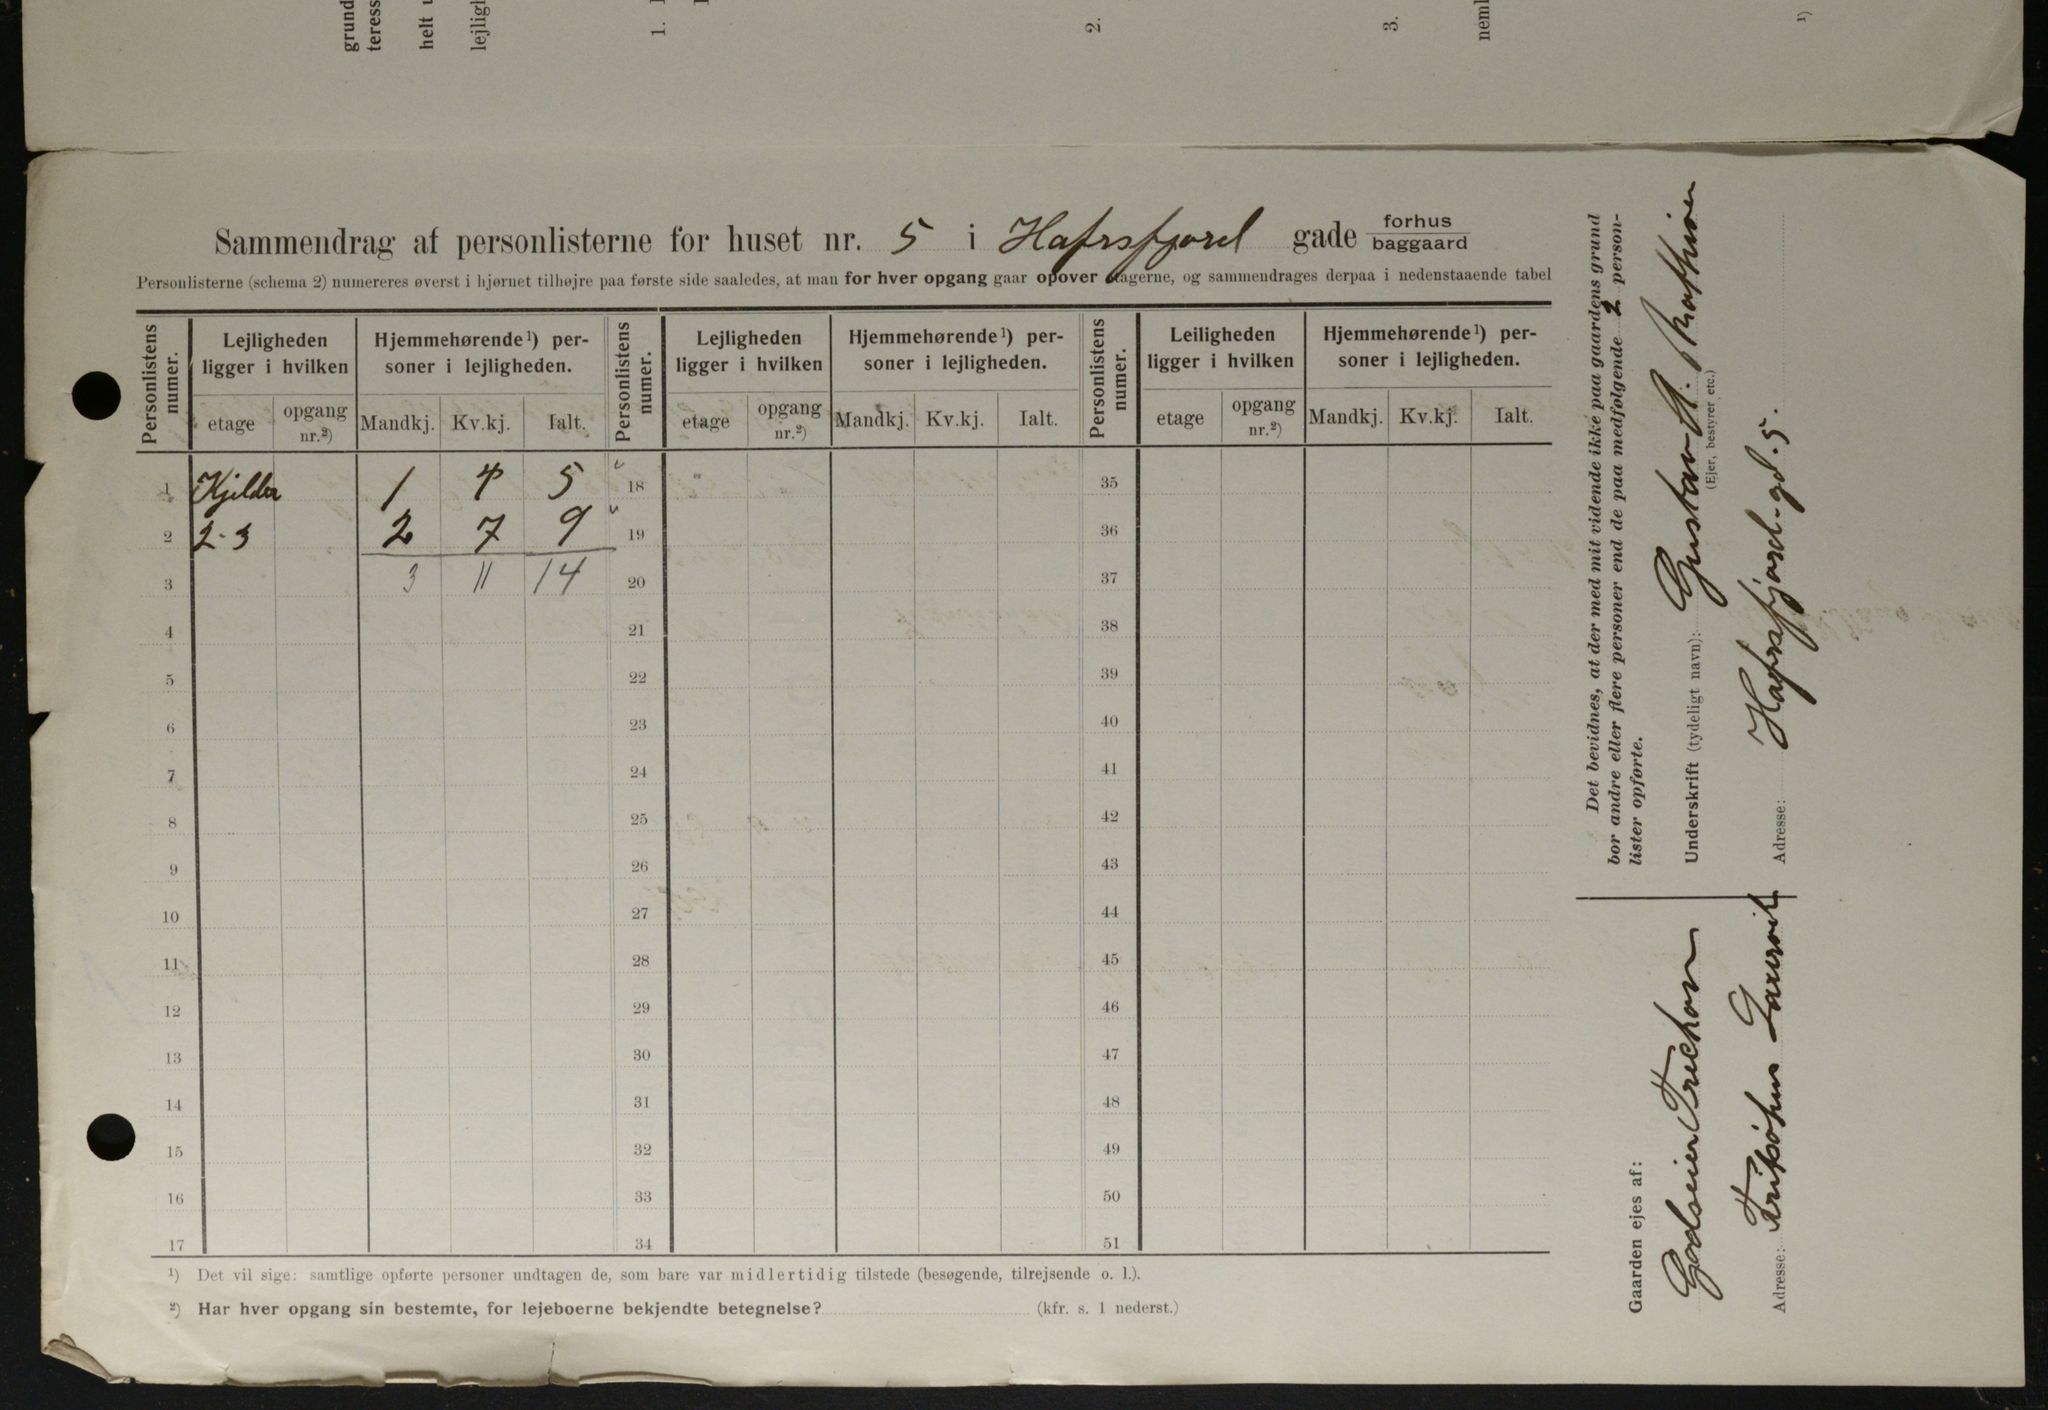 grund
teress
helt u
lejligh
1.
2.
3.
neml
¹)
Sammendrag af personlisterne for huset nr. 5 i Hafrsfjord gade forhus
baggaard
Personlisterne (schema 2) numereres øverst i hjørnet tilhøjre paa første side saaledes, at man for hver opgang gaar opover etagerne, og sammendrages derpaa i nedenstaaende tabel
Personlistens numer. Lejligheden ligger i hvilken Hjemmehørende¹) personer i lejligheden. Personlistens numer. Lejligheden ligger i hvilken Hjemmehørende¹) personer i lejligheden. Personlistens numer. Leiligheden ligger i hvilken Hjemmehørende¹) personer i lejligheden.
etage opgang nr.²) Mandkj. Kv.kj. Ialt. etage opgang nr.²) Mandkj. Kv.kj. Ialt. etage opgang nr.²) Mandkj. Kv.kj. Ialt.
1 Kjelder 1 4 5 18 35
2 2-3 2 7 9 19 36
3 3 11 14 20 37
4 21 38
5 22 39
6 23 40
7 24 41
8 25 42
9 26 43
10 27 44
11 28 45
12 29 46
13 30 47
14 31 48
15 32 49
16 33 50
17 34 51
¹) Det vil sige: samtlige opførte personer undtagen de, som bare var midlertidig tilstede (besøgende, tilrejsende o. l.).
²) Har hver opgang sin bestemte, for lejeboerne bekjendte betegnelse? (kfr. s. 1 nederst.)
Det bevidnes, at der med mit vidende ikke paa gaardens grund
bor andre eller flere personer end de paa medfølgende 2 person-
lister opførte.
Underskrift (tydeligt navn): Gustav A. Mathisen
(Ejer, bestyrer etc.)
Adresse: Hafrsfjord-gd. 5.
Gaarden ejes af:
Godseier Treschow
Adresse: Fritsöhus Laurvik